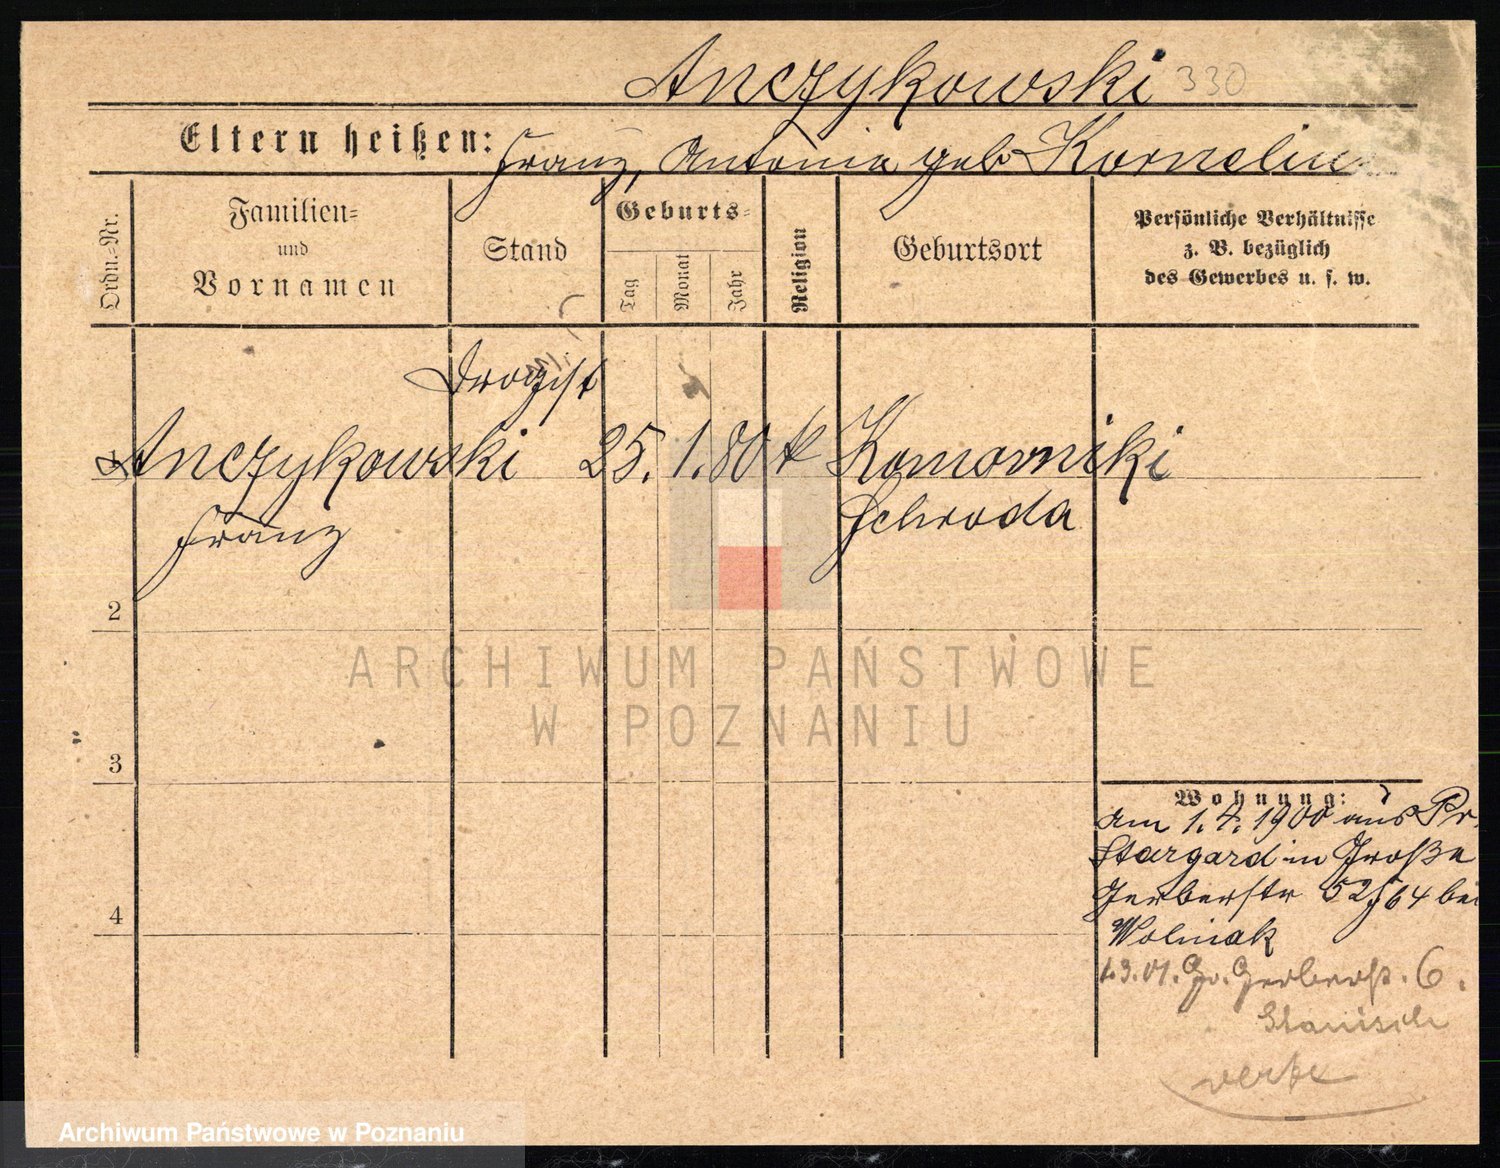 Anczykowski 330
Eltern heißen: Franz, Antonie geb Kornelius
Ordn.-Nr.
Familien-
und
Vornamen
Stand
Geburts-
Tag
Monat
Jahr
Religion
Geburtsort
Persönliche Verhältnisse
z. B. bezüglich
des Gewerbes u. s. w.
Drogist
1 Anczykowski 25. 1. 80 k Komorniki
Franz Schroda
2
3
4
Wohnung:
am 1. 4. 1900 aus Pr.
Stargard in Große
Gerberstr 52/64 bei
Wolniak
1.3.01. Gr. Gerberstr. 6.
ARCHIWUM PAŃSTWOWE
W POZNANIU
Archiwum Państwowe w Poznaniu